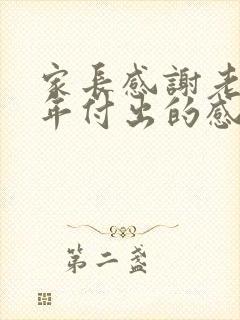 家長感謝老
年付出的感
第二盞